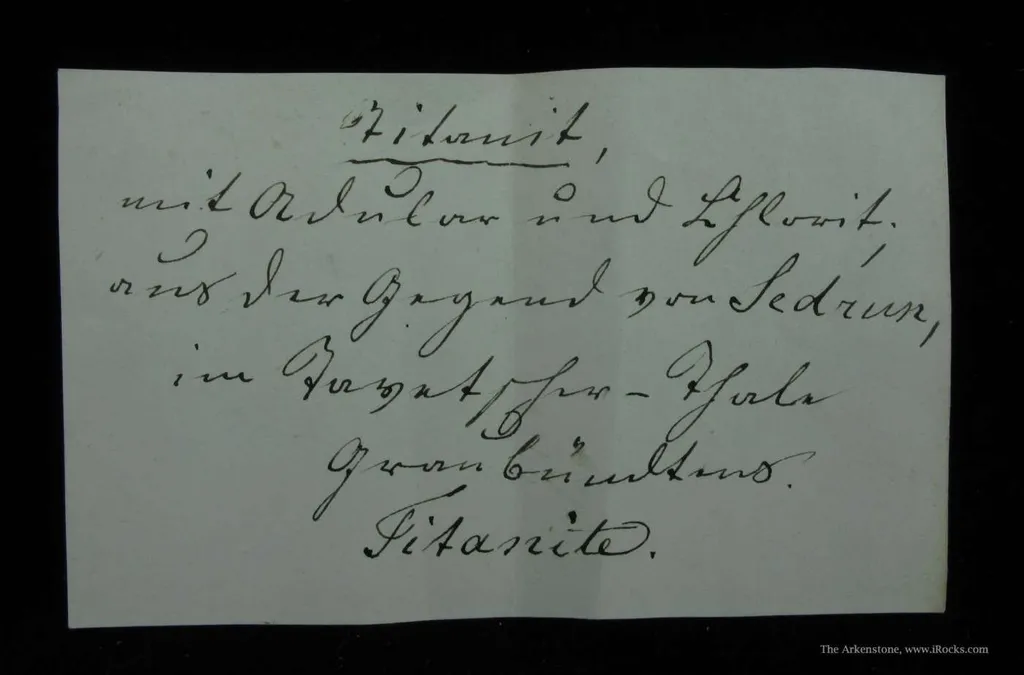 Titanit,
mit Adular und Chlorit;
aus der Gegend von Sedrun,
im Tavetscher-Thale
Graubündtens.
Titanite.
The Arkenstone, www.iRocks.com